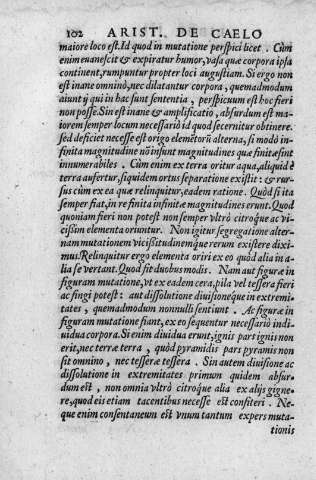 102 ARIST. DE CAELO
maiore loco est. Id quod in mutatione perspici licet. Cùm
enim euanescit & expiratur humor, uasa quæ corpora ipsa
continent, rumpuntur propter loci augustiam. Si ergo non
est inane omnino, nec dilatantur corpora, quemadmodum
aiunt ij qui in hac sunt sententia, perspicuum est hoc fieri
non posse. Sin est inane & amplificatio, absurdum est ma-
iorem semper locum necessariò id quod secernitur obtinere.
sed deficiet necesse est origo elemẽtorũ alterna, si modò in-
finita magnitudine nõ insunt magnitudines quæ finitæ sint
innumerabiles. Cùm enim ex terra oritur aqua, aliquid è
terra aufertur, siquidem ortus separatione existit: & rur-
sus cùm ex ea quæ relinquitur, eadem ratione. Quòd si ita
semper fiat, in re finita infinitæ magnitudines erunt. Quod
quoniam fieri non potest non semper vltrò citroque ac vi-
cissim elementa oriuntur. Non igitur segregatione alter-
nam mutationem vicissitudinemque rerum existere dixi-
mus. Relinquitur ergo elementa oriri ex eo quòd alia in a-
lia se vertant. Quod fit duobus modis. Nam aut figuræ in
figuram mutatione, vt ex eadem cera, pila vel tessera fieri
ac fingi potest: aut dissolutione diuisioneque in extremi-
tates, quemadmodum nonnulli sentiunt. Ac figuræ in
figuram mutatione fiant, ex eo sequentur necessariò indi-
uidua corpora. Si enim diuidua erunt, ignis pars ignis non
erit, nec terræ terra, quòd pyramidis pars pyramis non
sit omnino, nec tesseræ tessera. Sin autem diuisione ac
dissolutione in extremitates primum quidem absur-
dum est, non omnia vltrò citroque alia ex alijs gigne-
re, quod eis etiam tacentibus necesse est confiteri. Ne-
que enim consentaneum est vnum tantum expers muta-
tionis